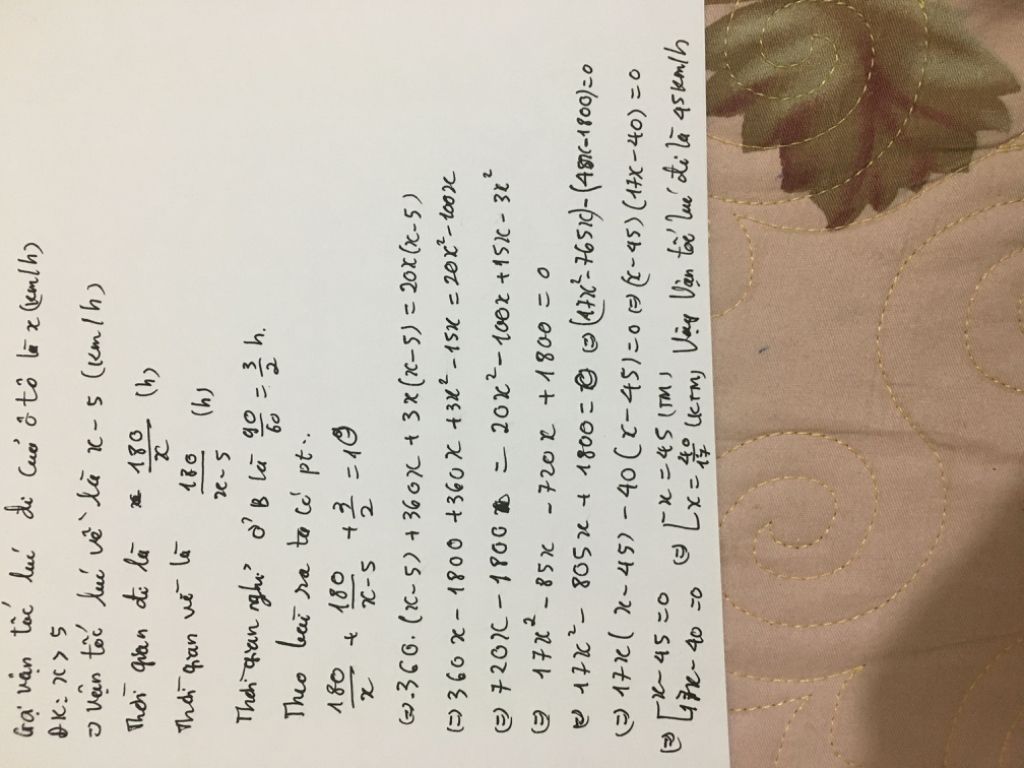 Gọi vận tốc lúc đi của ô tô là x (km/h)
ĐK: x > 5
=> vận tốc lúc về là x - 5 (km/h)
Thời gian đi là 180/x (h)
Thời gian về là 180/(x-5) (h)
Thời gian nghỉ ở B là 90/60 = 3/2 h.
Theo bài ra ta có pt:
180/x + 180/(x-5) + 3/2 = 10
(=) 360.(x-5) + 360x + 3x(x-5) = 20x(x-5)
(=) 360x - 1800 + 360x + 3x² - 15x = 20x² - 100x
(=) 720x - 1800 = 20x² - 100x + 15x - 3x²
(=) 17x² - 85x - 720x + 1800 = 0
(=) 17x² - 805x + 1800 = 0 (=) (17x² - 765x) - (40x - 1800) = 0
(=) 17x(x-45) - 40(x-45) = 0 (=) (x-45)(17x-40) = 0
(=) [x-45=0 (=) [x = 45 (TM)
[17x-40=0 [x = 40/17 (KTM) Vậy vận tốc lúc đi là 45km/h